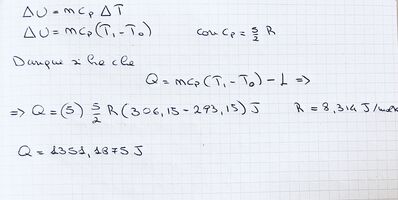 ΔU = m cp ΔT
ΔU = m cp (T₁ - T₀) con cp = 5/2 R
Dunque si ha che
Q = m cp (T₁ - T₀) - L =>
=> Q = (5) 5/2 R (306,15 - 293,15) J R = 8,314 J/mol
Q = 1351,1875 J